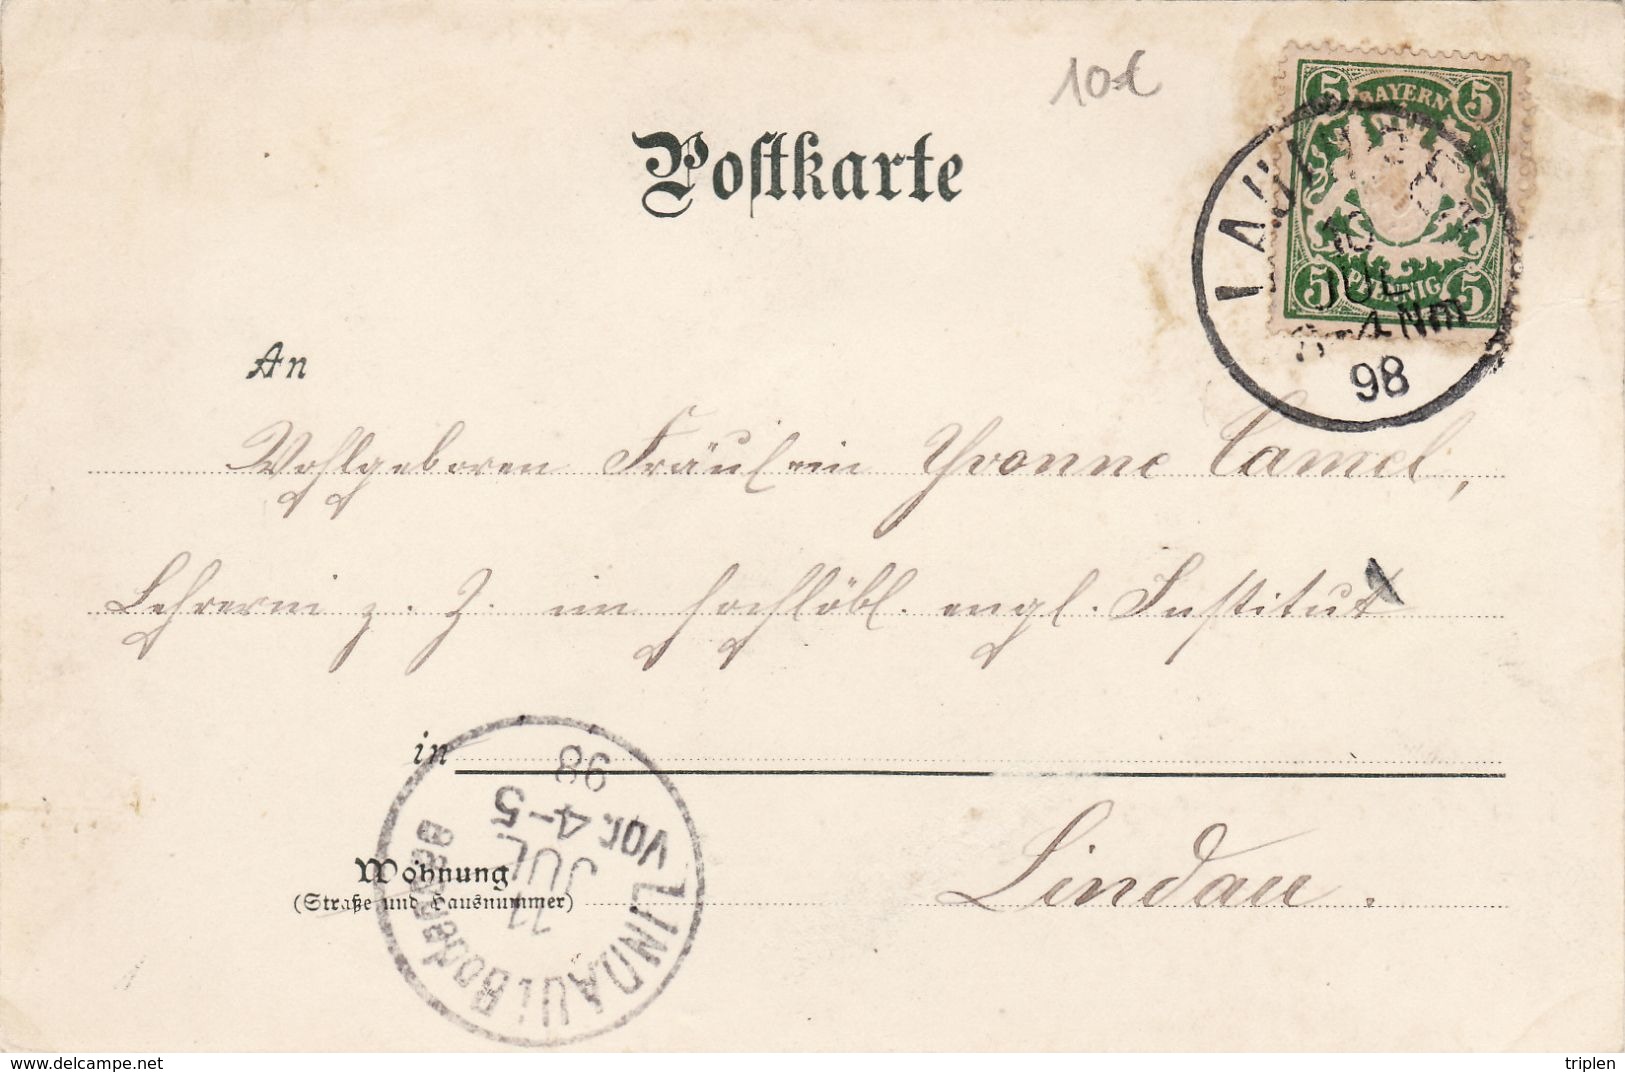 10€
Postkarte
5 BAYERN 5
5 PFENNIG 5
10
JUL
4 Nm
98
An
Wohlgeboren Fräulein Yvonne Camel,
Lehrerin z. Z. im hochlöbl. engl. Institut
in
Lindau.
Wohnung
(Straße und Hausnummer)
LINDAU i Bodensee
11
JUL
Vor. 4-5
98
www.delcampe.net
triplen